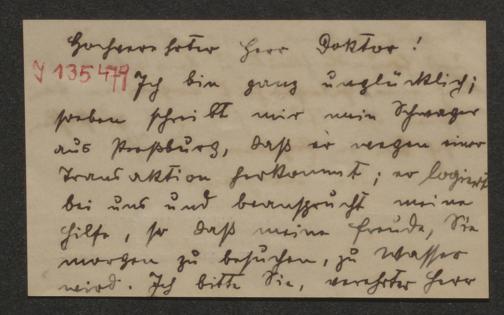 Hochverehrter Herr Doktor!
J 135479
Ich bin ganz unglücklich;
soeben schreibt mir mein Schwager
aus Preßburg, daß er wegen einer
Transaktion herkommt; er logiert
bei uns und beansprucht meine
Hilfe, so daß meine Freude, Sie
morgen zu besuchen, zu Wasser
wird. Ich bitte Sie, verehrter Herr